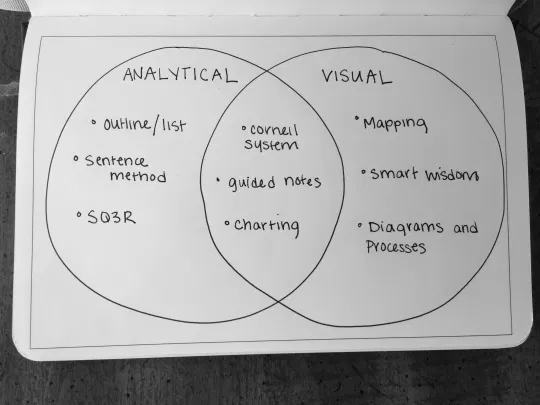 ANALYTICAL
• outline/list
• Sentence
method
• SQ3R
• cornell
system
• guided notes
• Charting
VISUAL
• Mapping
• smart wisdom
• Diagrams and
Processes